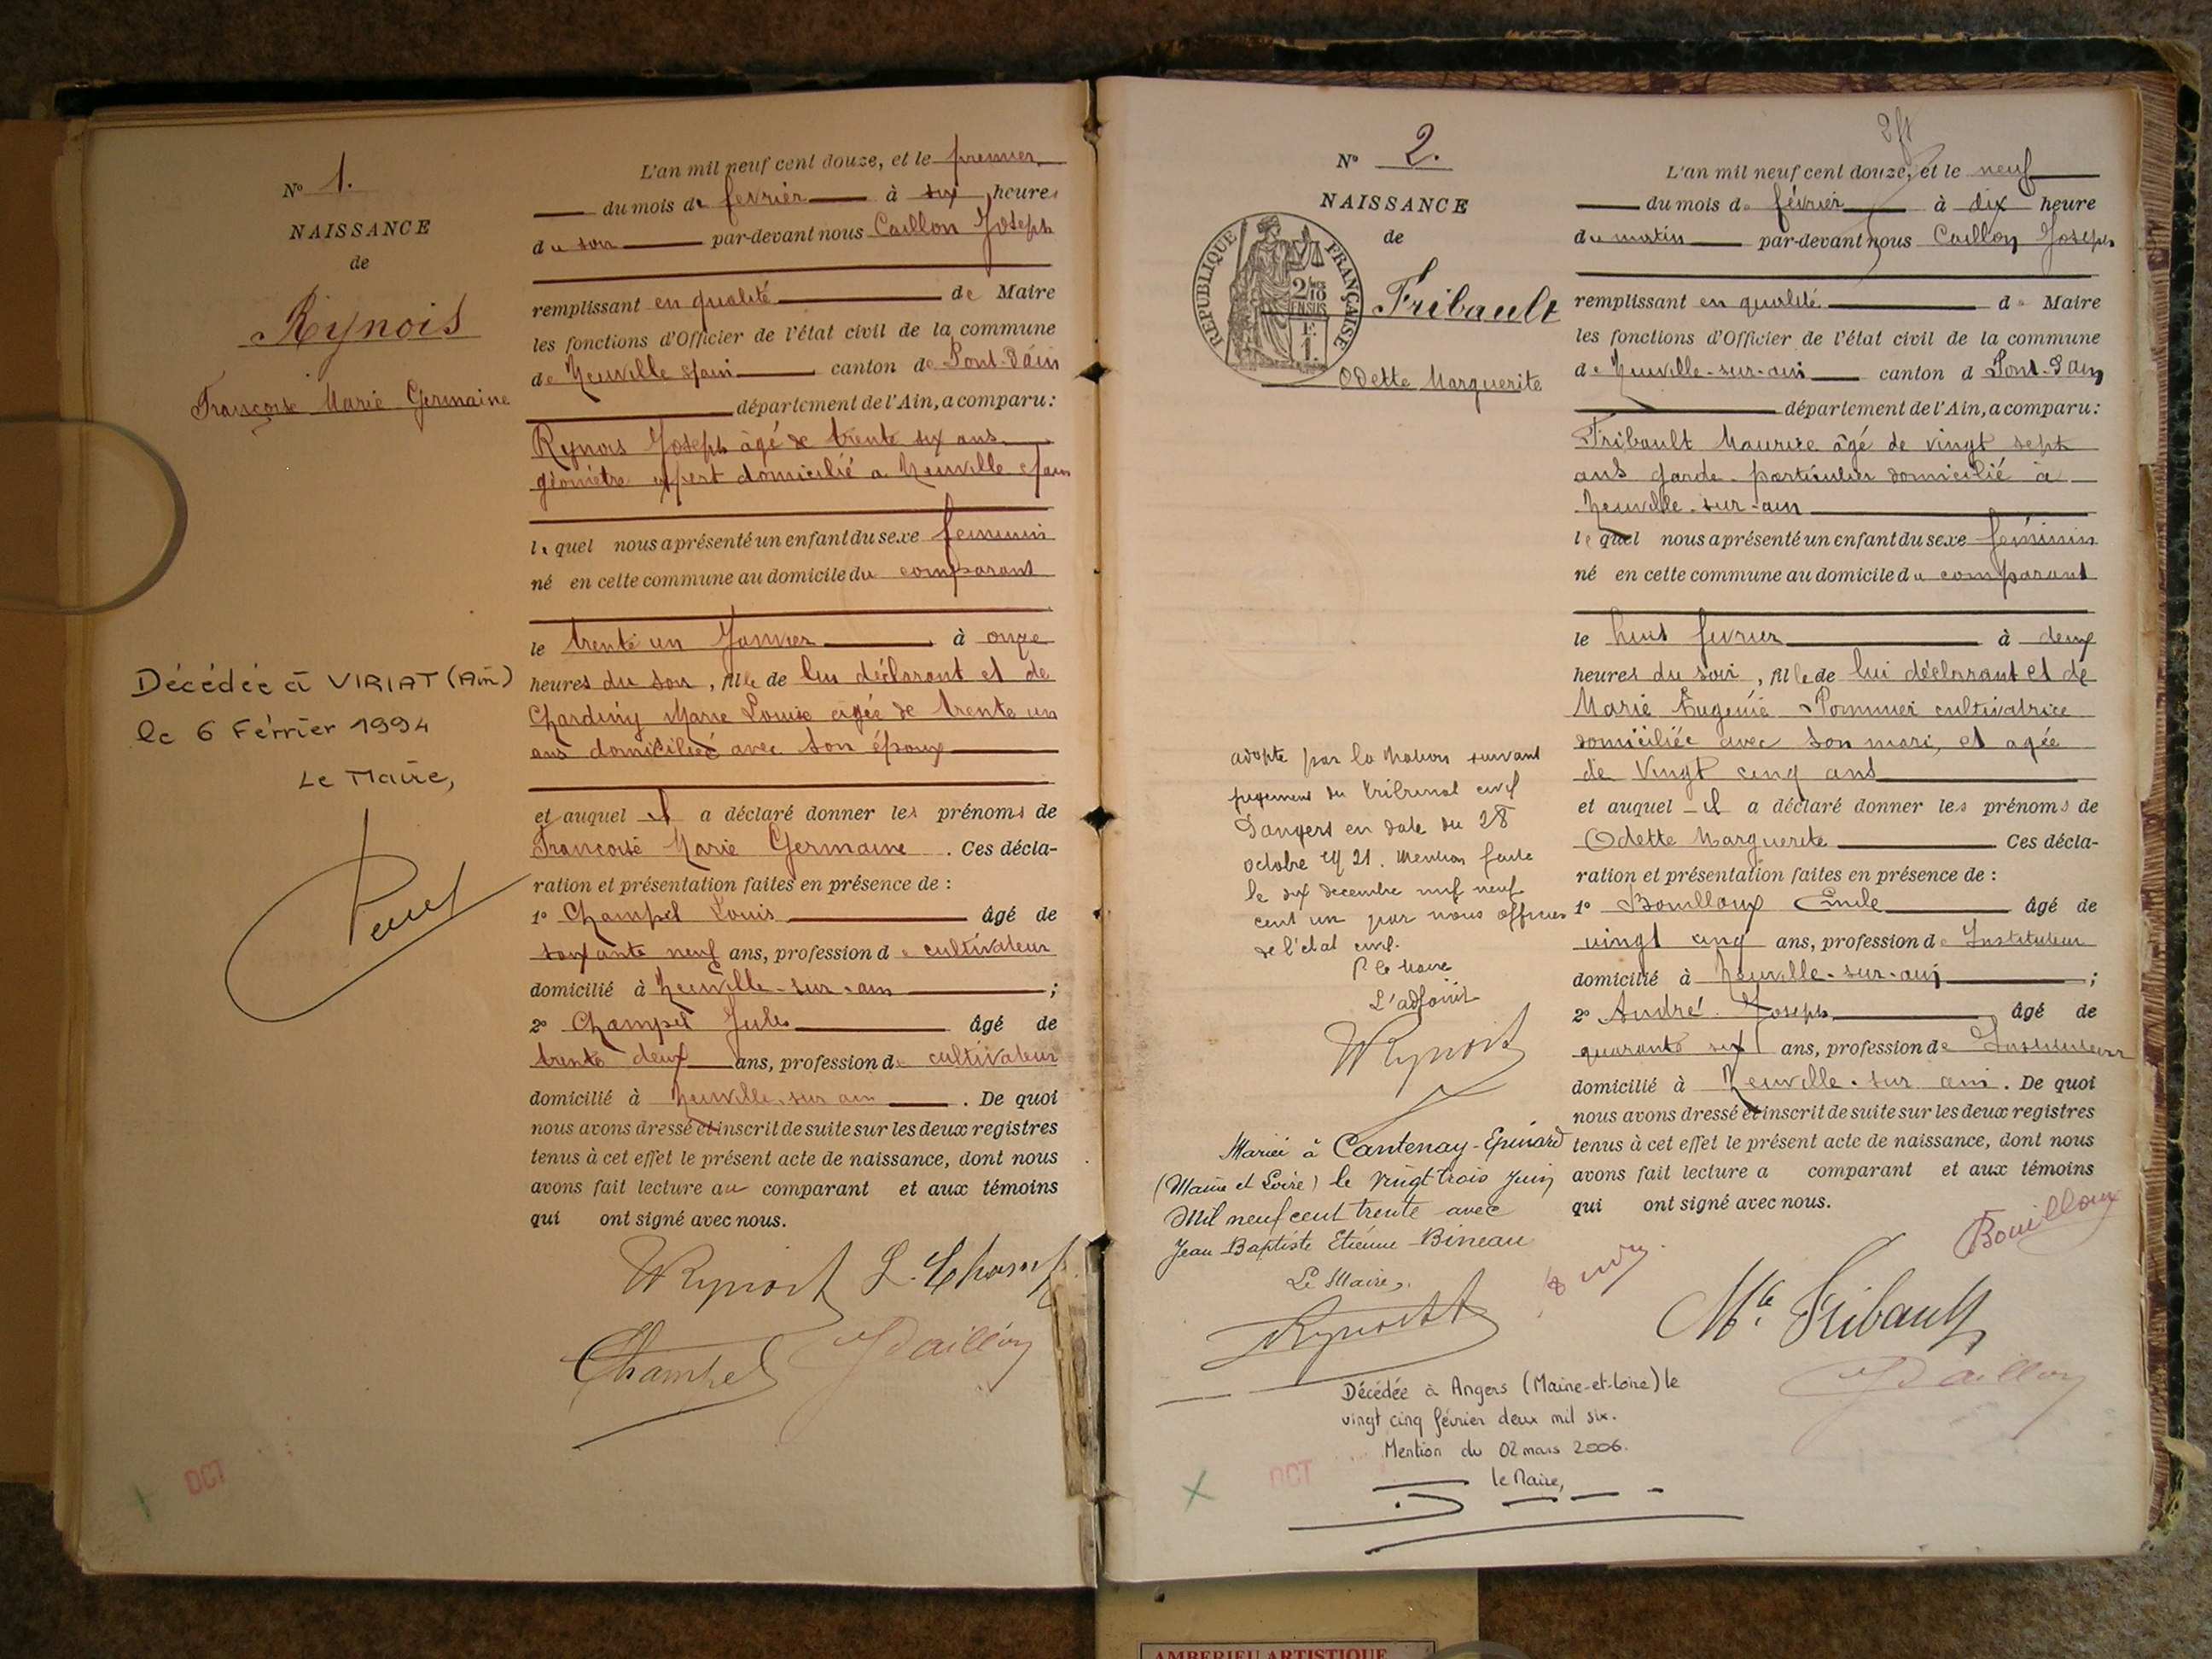 N° 1.
NAISSANCE
de
Rynois
Françoise Marie Germaine
Décédée à VIRIAT (Ain)
le 6 Février 1994
Le Maire,
L'an mil neuf cent douze, et le premier
du mois de fevrier à six heures
du soir par-devant nous Caillon Joseph
remplissant en qualité de Maire
les fonctions d'Officier de l'état civil de la commune
de Neuville s/ain canton de Pont-d'ain
département de l'Ain, a comparu :
Rynois Joseph âgé de trente six ans
géomètre expert domicilié a Neuville s/ain
lequel nous a présenté un enfant du sexe feminin
né en cette commune au domicile du comparant
le trente un Janvier à onze
heures du soir, fille de lui déclarant et de
Chardiny Marie Louise agée de trente un
ans domiciliée avec son époux
et auquel il a déclaré donner les prénoms de
Françoise Marie Germaine. Ces décla-
ration et présentation faites en présence de :
1° Champel Louis âgé de
soixante neuf ans, profession de cultivateur
domicilié à Neuville-sur-ain ;
2° Champel Jules âgé de
trente deux ans, profession de cultivateur
domicilié à Neuville-sur ain. De quoi
nous avons dressé et inscrit de suite sur les deux registres
tenus à cet effet le présent acte de naissance, dont nous
avons fait lecture au comparant et aux témoins
qui ont signé avec nous.
Rynois L. Champel
Champel J Caillon
OCT
N° 2.
NAISSANCE
de
REPUBLIQUE FRANÇAISE
2/10 EN SUS
1 F.
Fribault
Odette Marguerite
adopte par la Nation suivant
jugement du tribunal civil
d'angers en date du 28
octobre 1921. Mention faite
le dix decembre mil neuf
cent un par nous officier
de l'état civil.
P le Maire
L'adjoint
Rynois
Mariée à Cantenay-Epinard
(Maine et Loire) le vingt trois Juin
Mil neuf cent trente avec
Jean-Baptiste Etienne Bineau
Le Maire,
Rynois
Décédée à Angers (Maine-et-Loire) le
vingt cinq février deux mil six.
Mention du 02 mars 2006.
le Maire,
OCT
L'an mil neuf cent douze, et le neuf
du mois de février à dix heure
du matin par-devant nous Caillon Joseph
remplissant en qualité de Maire
les fonctions d'Officier de l'état civil de la commune
de Neuville-sur-ain canton d Pont-d'ain
département de l'Ain, a comparu :
Fribault Maurice âgé de vingt sept
ans garde-particulier domicilié à
Neuville-sur-ain
lequel nous a présenté un enfant du sexe féminin
né en cette commune au domicile du comparant
le huit fevrier à deux
heures du soir, fille de lui déclarant et de
Marie Eugénie Pommier cultivatrice
domiciliée avec son mari, et agée
de Vingt cinq ans
et auquel il a déclaré donner les prénoms de
Odette Marguerite Ces décla-
ration et présentation faites en présence de :
1° Bouilloux Emile âgé de
vingt cinq ans, profession de Instituteur
domicilié à Neuville-sur-ain ;
2° André Joseph âgé de
quarante six ans, profession de Instituteur
domicilié à Neuville-sur ain. De quoi
nous avons dressé et inscrit de suite sur les deux registres
tenus à cet effet le présent acte de naissance, dont nous
avons fait lecture a comparant et aux témoins
qui ont signé avec nous.
Bouilloux
Mce. Fribault
J Caillon
AMBERIEU ARTISTIQUE